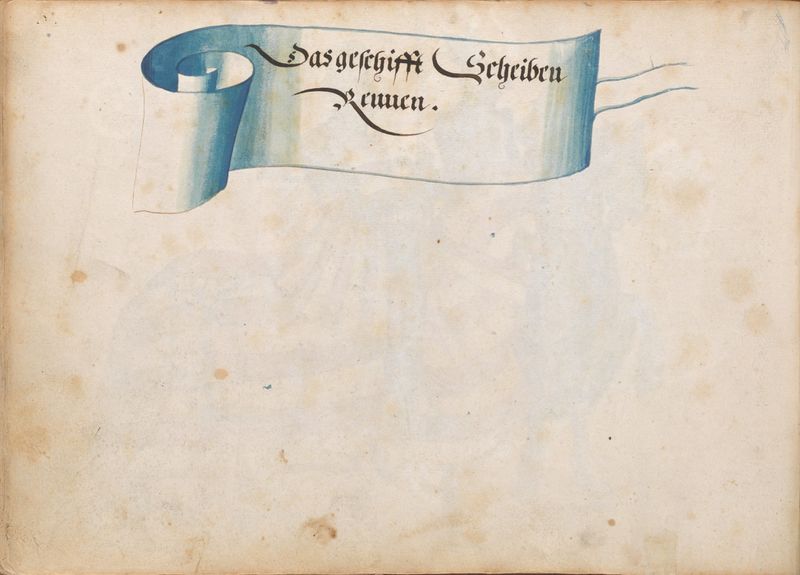 Das geschifft Scheiben
Rennen.